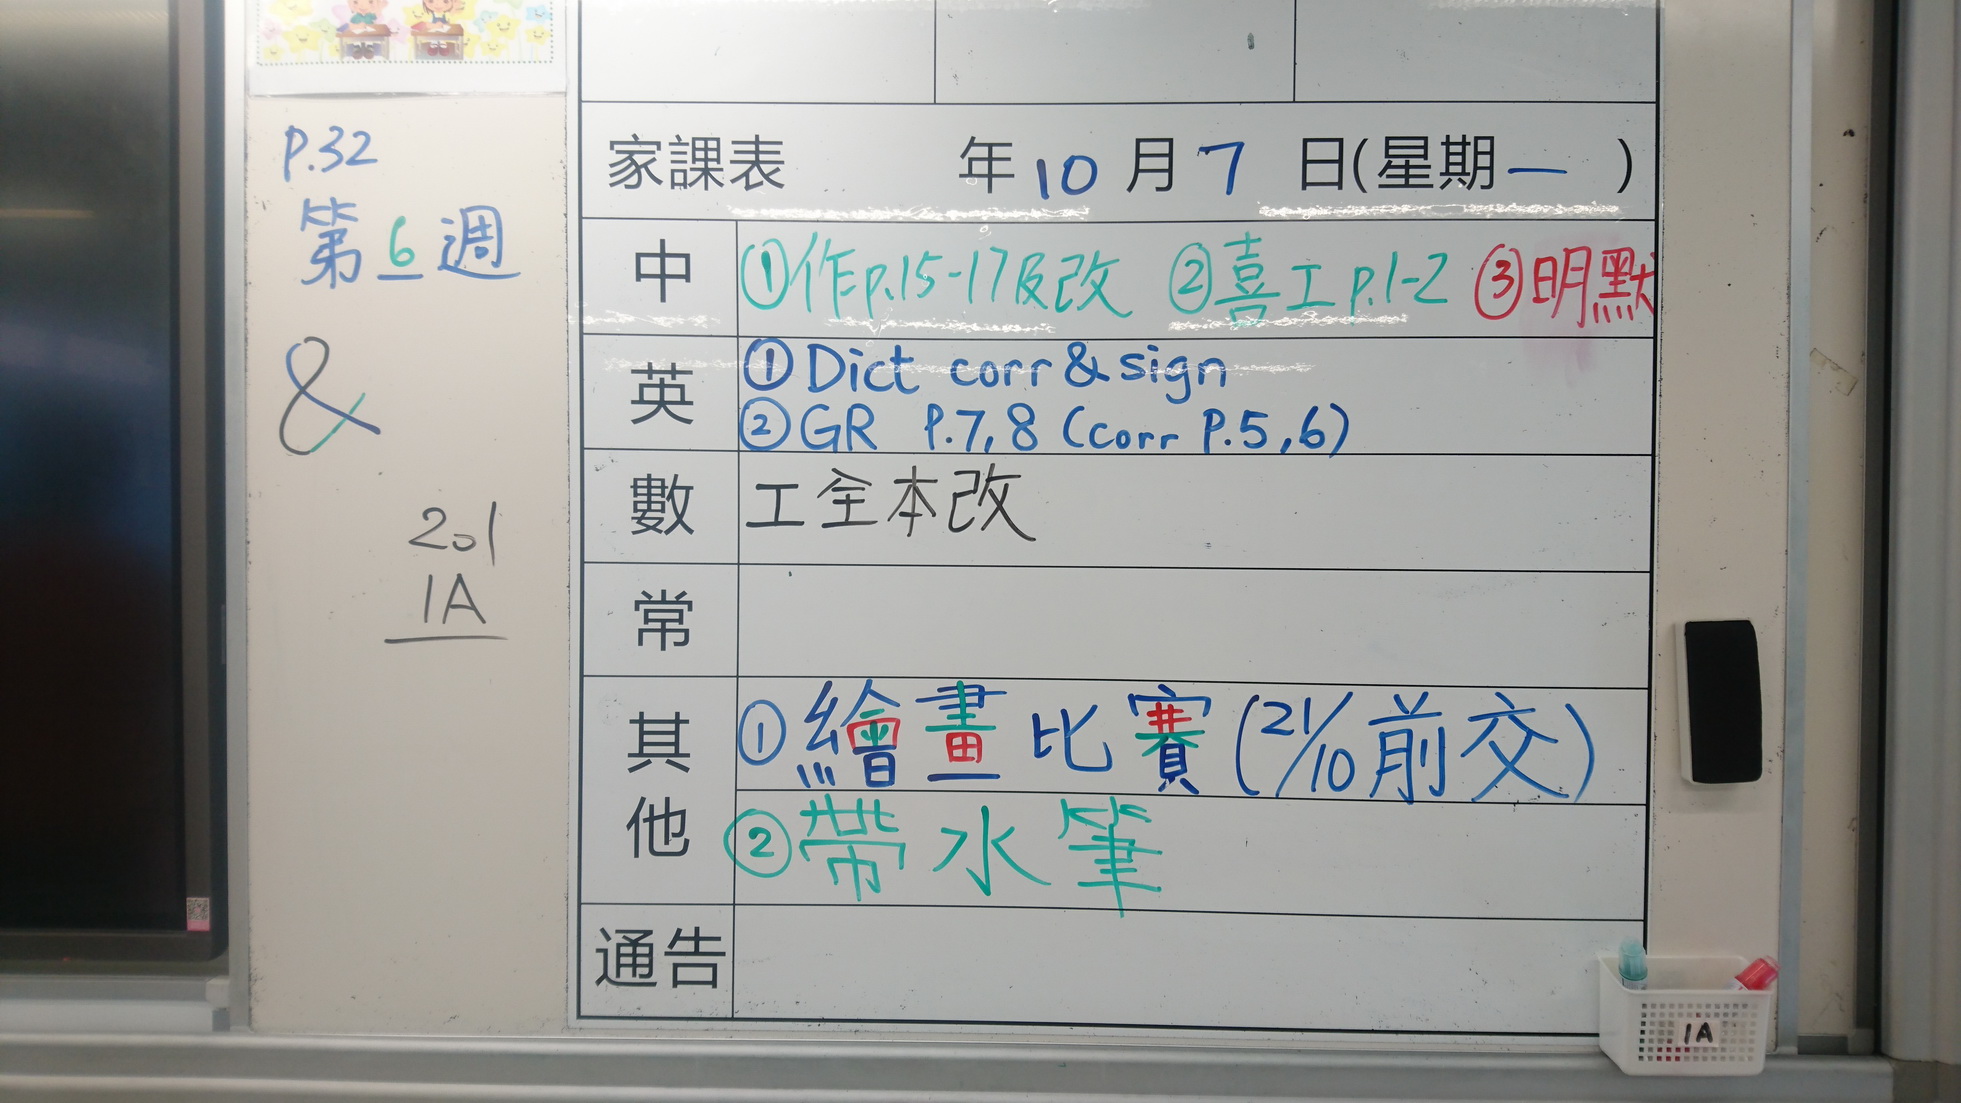 P.32
第6週
&
201
1A
家課表 年10月7日(星期一)
中 ①作p.15-17及改 ②喜工p.1-2 ③明默
英 ①Dict corr & sign
②GR P.7,8 (corr P.5,6)
數 工全本改
常
其他 ①繪畫比賽(21/10前交)
②帶水筆
通告
1A